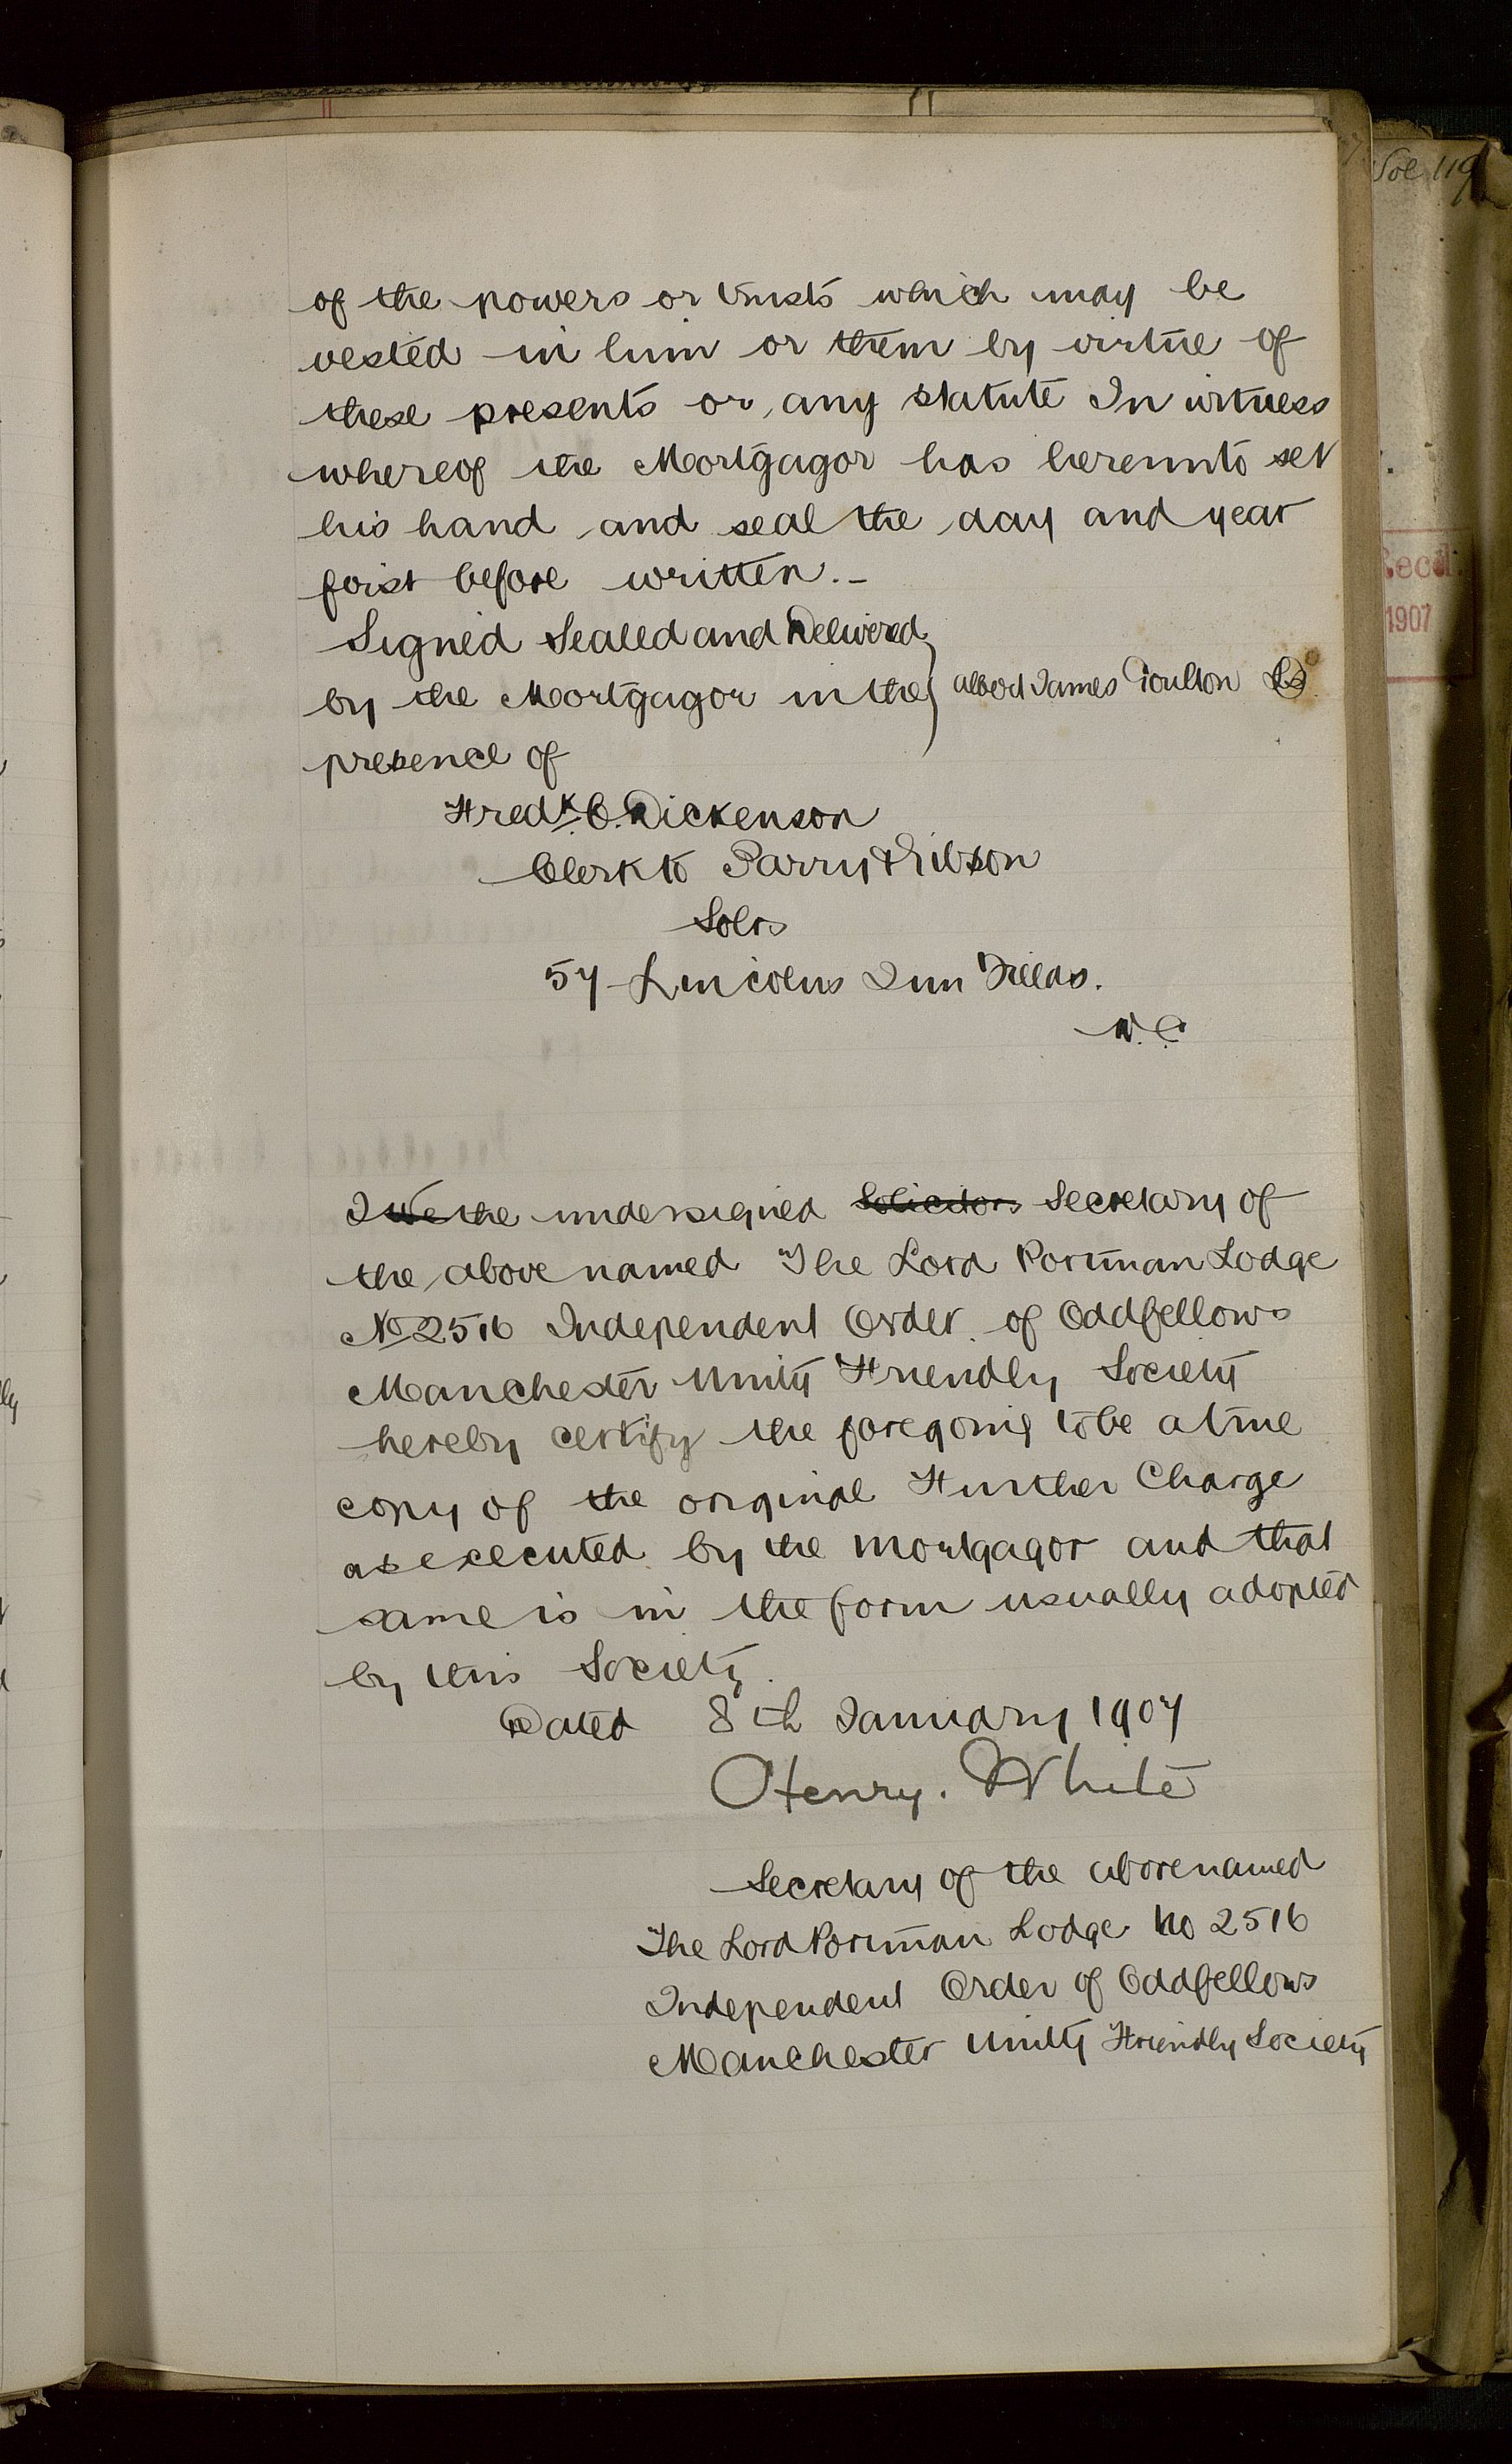 of the powers or trusts which may be
vested in him or them by virtue of
these presents or any statute In witness
whereof the Mortgagor has hereunto set
his hand and seal the day and year
first before written.-
Signed Sealed and Delivered
by the Mortgagor in the } Albert James Poulton LS
presence of
Fredk. C. Dickenson
Clerk to Parry & Gibson
Solrs
57 Lincolns Inn Fields.
W.C.
I We the undersigned Solicitors Secretary of
the above named The Lord Portman Lodge
No 2516 Independent Order of Oddfellows
Manchester Unity Friendly Society
hereby certify the foregoing to be a true
copy of the original Further Charge
as executed by the Mortgagor and that
same is in the form usually adopted
by this Society.
Dated 8th January 1907
Henry. White
Secretary of the abovenamed
The Lord Portman Lodge No 2516
Independent Order of Oddfellows
Manchester Unity Friendly Society
Recd.
1907